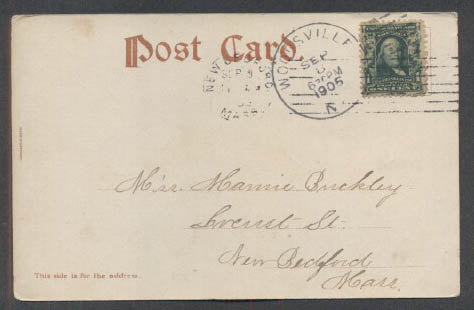 Post Card
WOODSVILLE
SEP
6-PM
1905
N
NEW
SEP
MASS
Miss. Mamie Buckley
Locust St.
New Bedford
Mass.
This side is for the address.